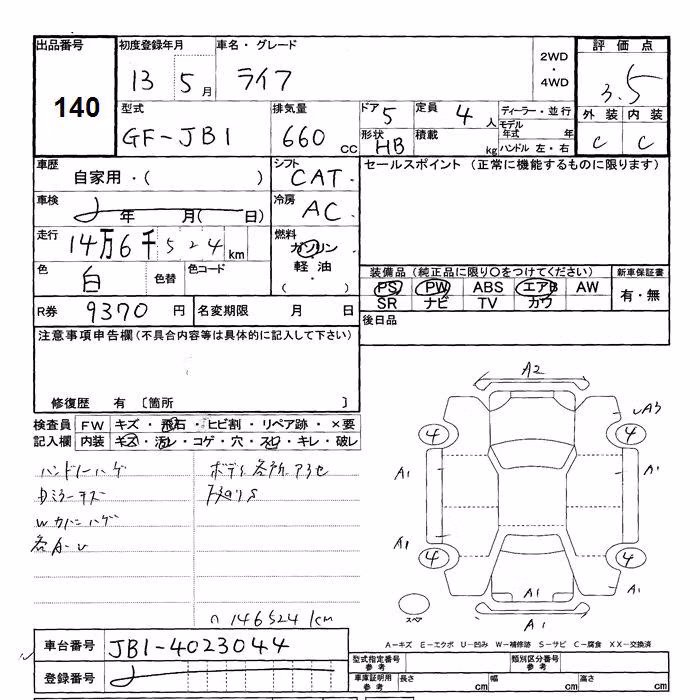 出品番号 初度登録年月 車名・グレード 2WD・4WD 評価点
140 13 5月 ライフ 3.5
型式 排気量 ドア 5 定員 4人 ディーラー・並行 外装 内装
GF-JB1 660cc 形状 HB 積載 kg モデル年式 年 ハンドル 左・右 C C
車歴 シフト セールスポイント (正常に機能するものに限ります)
自家用・( ) CAT・
車検 冷房
年 月( 日) AC・
走行 14万6千524km 燃料
ガソリン・軽油・( )
色 白 色替 色コード 装備品(純正品に限り○をつけてください) 新車保証書
PS PW ABS エアB AW 有・無
SR ナビ TV カワ
R券 9370円 名変期限 月 日 後日品
注意事項申告欄(不具合内容等は具体的に記入して下さい)
修復歴 有 〔箇所 〕
A2
検査員 FW キズ・飛石・ヒビ割・リペア跡・×要
記入欄 内装 キズ・汚レ・コゲ・穴・スレ・キレ・破レ
4 4
ハンドルハゲ ボディ各所アセ
A1 A1
Dミラーキズ
Wカバーハゲ
各A-U
A1
4 4
A1 A1
スペア A1
146524km
車台番号 JB1-4023044
A-キズ E-エクボ U-凹み W-補修跡 S-サビ C-腐食 XX-交換済
登録番号
型式指定番号参考 類別区分番号参考
車庫証明用参考 長さ cm 幅 cm 高さ cm